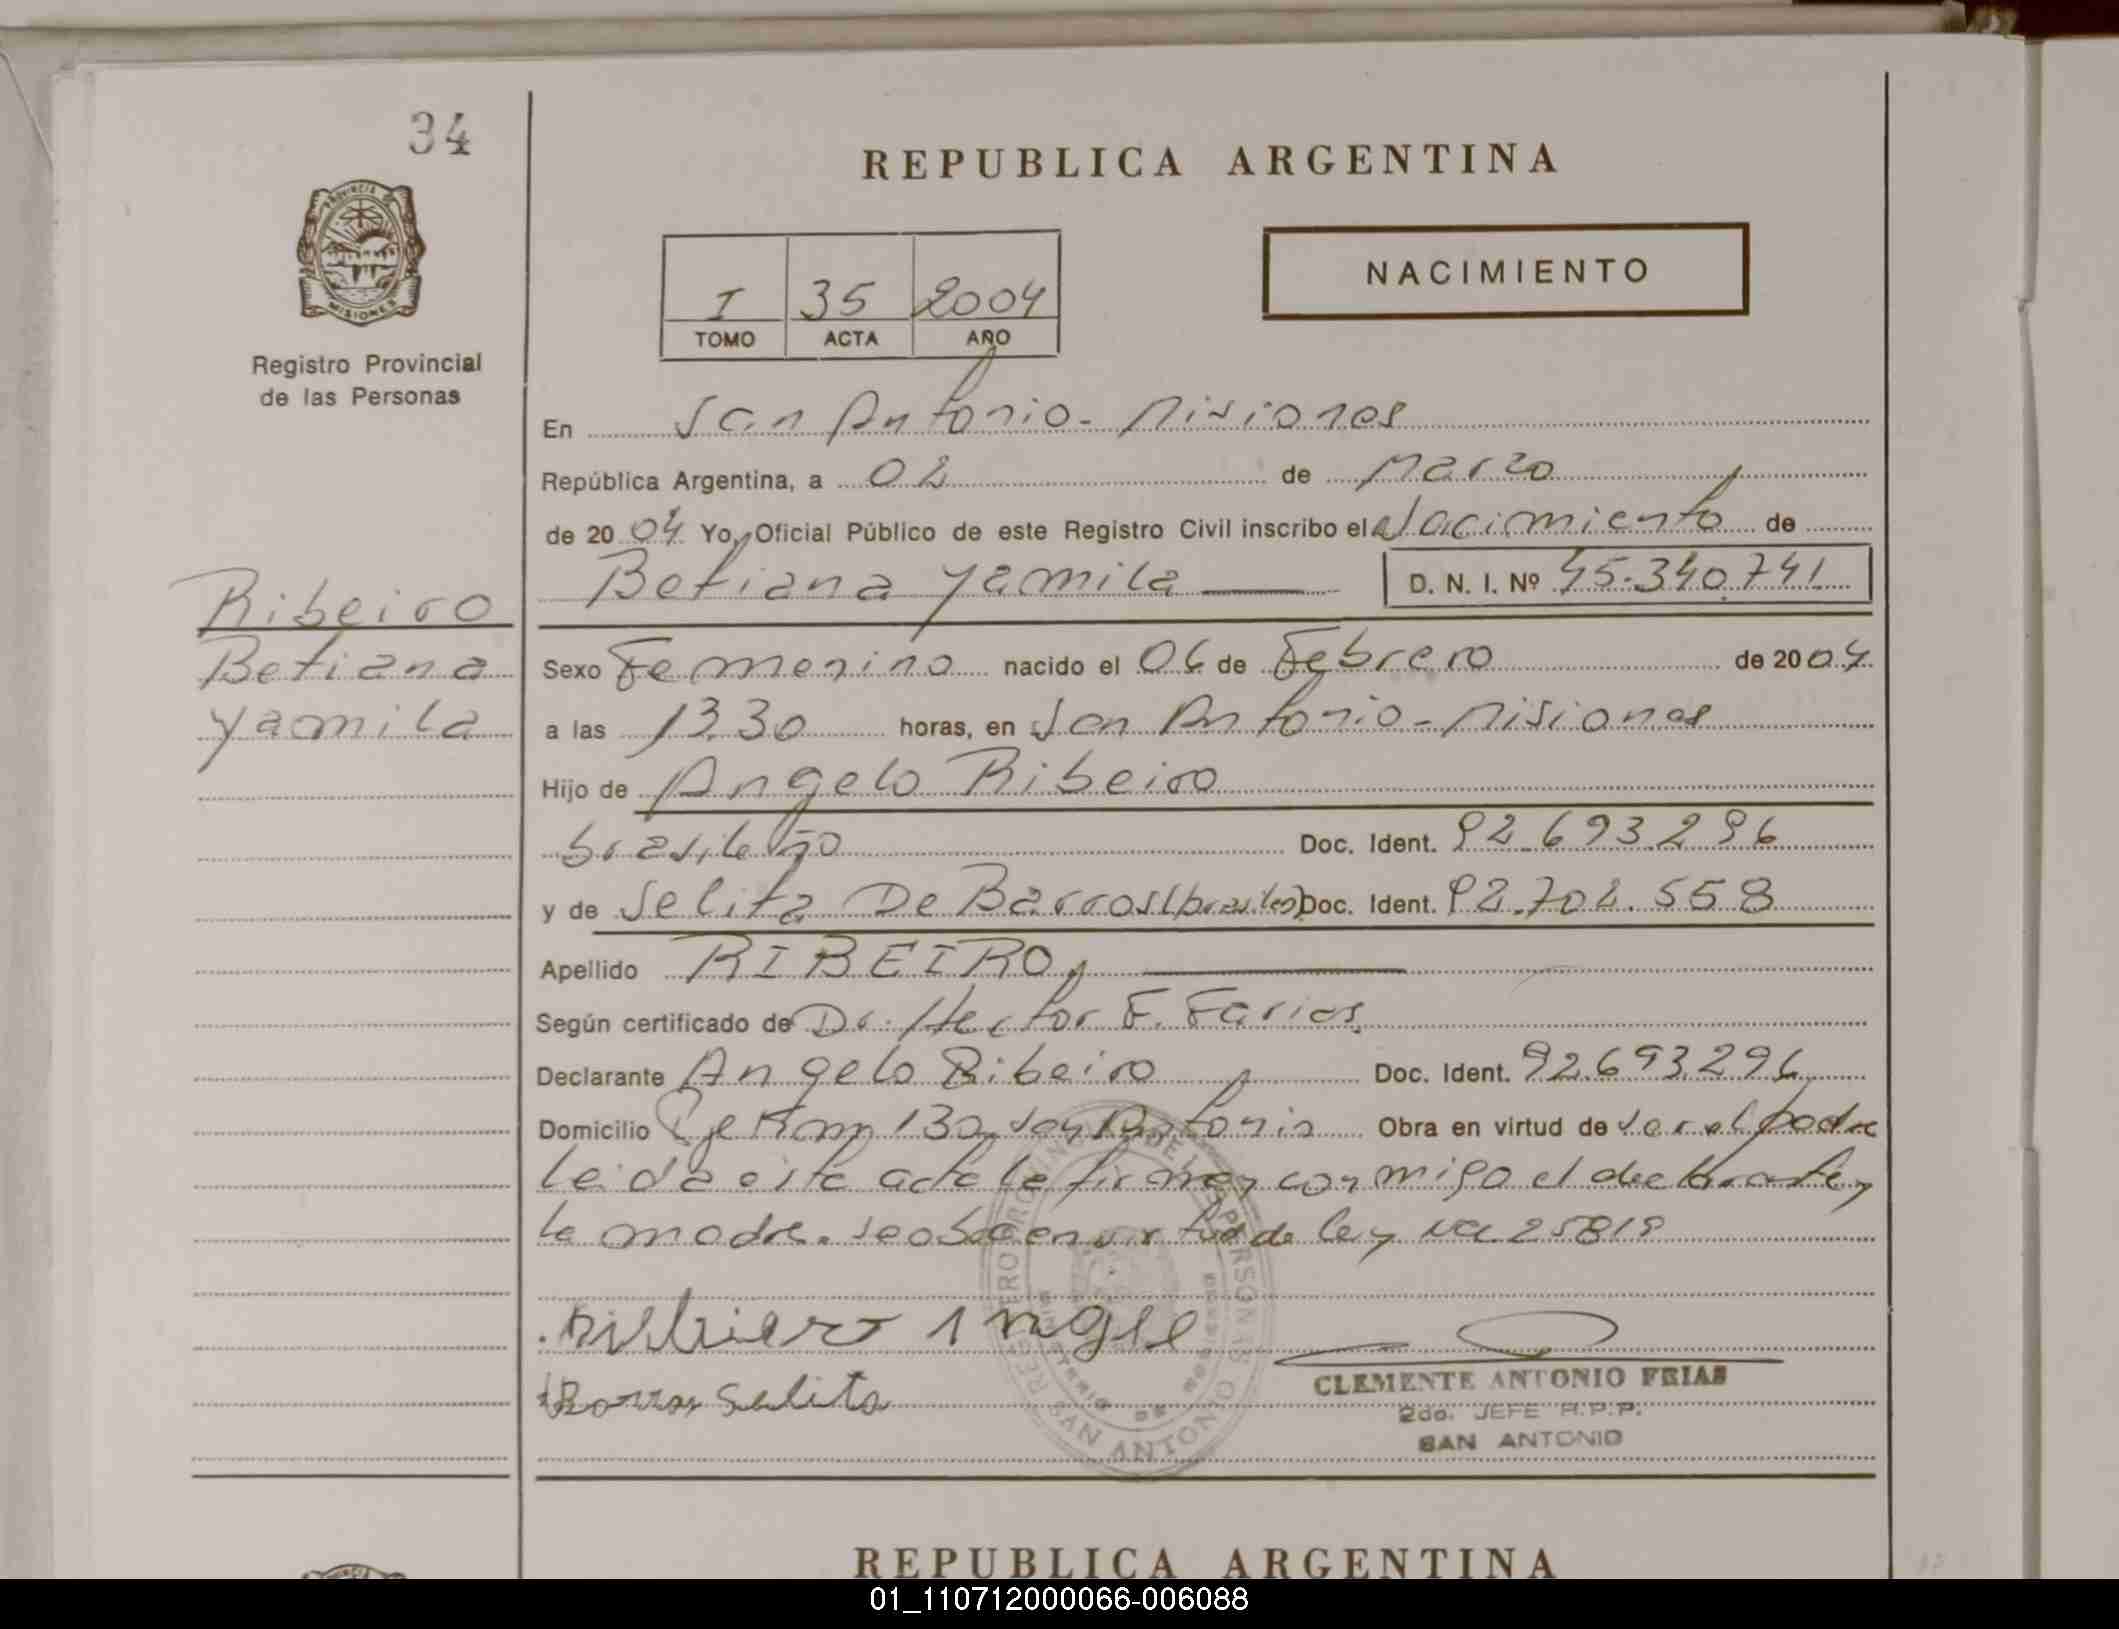 34
REPUBLICA ARGENTINA
PROVINCIA DE
MISIONES
NACIMIENTO
I 35 2004
TOMO ACTA AÑO
Registro Provincial
de las Personas
En San Antonio - Misiones
República Argentina, a 02 de Marzo
de 2004 Yo, Oficial Público de este Registro Civil inscribo el Nacimiento de
Betiana Yamila D. N. I. Nº 45.340.741
Ribeiro
Betiana
Yamila
Sexo Femenino nacido el 06 de Febrero de 2004
a las 13.30 horas, en San Antonio - Misiones
Hijo de Angelo Ribeiro
brasileño Doc. Ident. 92.693.296
y de Selita De Barros (brasileo) Doc. Ident. 92.702.558
Apellido RIBEIRO,
Según certificado de Dr. Hector F. Farias.
Declarante Angelo Ribeiro Doc. Ident. 92.693.296
Domicilio Pje Km 130 San Antonio Obra en virtud de ser el padre
Leida esta acta la firman conmigo el declarante y
la madre. se obra en virtud de ley 25819
Selita
CLEMENTE ANTONIO FRIAS
2do. JEFE R.P.P.
SAN ANTONIO
REGISTRO PROVINCIAL DE LAS PERSONAS
MINISTERIO DE GOBIERNO
SAN ANTONIO
REPUBLICA ARGENTINA
01_110712000066-006088